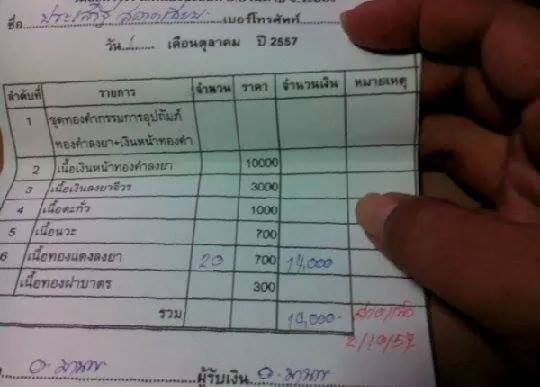 ชื่อ ประเสริฐ เบอร์โทรศัพท์
วัน เดือนตุลาคม ปี 2557
ลำดับที่ รายการ จำนวน ราคา จำนวนเงิน หมายเหตุ
1 ชุดทองคำกรรมการอุปถัมภ์
ทองคำลงยา+เงินหน้าทองคำ
2 เนื้อเงินหน้าทองคำลงยา 10000
3 เนื้อเงินลงยาจีวร 3000
4 เนื้อตะกั่ว 1000
5 เนื้อนวะ 700
6 เนื้อทองแดงลงยา 20 700 14,000
เนื้อทองฝาบาตร 300
รวม 14,000-
2/10/57
ผู้รับเงิน